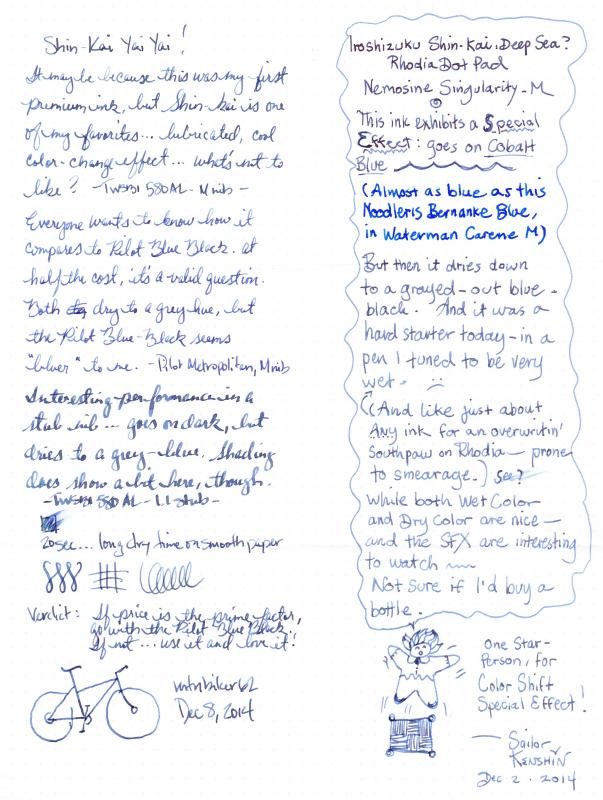 Shin-Kai Yai Yai!
It may be because this was my first
premium ink, but Shin-kai is one
of my favorites... lubricated, cool
color-change effect... what's not to
like? -TWSBI 580AL - M nib-
Everyone wants to know how it
compares to Pilot Blue Black. at
half the cost, it's a valid question.
Both dry to a grey hue, but
the Pilot Blue-Black seems
"bluer" to me. -Pilot Metropolitan, M nib
Interesting performance in a
stub nib... goes on dark, but
dries to a grey-blue. Shading
does show a bit here, though.
-TWSBI 580AL - 1.1 stub-
20sec... long dry time on smooth paper
Verdict: If price is the prime factor,
go with the Pilot Blue Black.
If not... use it and love it!
mtnbiker62
Dec 8, 2014
Iroshizuku Shin-Kai. Deep Sea?
Rhodia Dot Pad
Nemosine Singularity-M
This ink exhibits a Special
Effect: goes on Cobalt
Blue
(Almost as blue as this
Noodleris Bernanke Blue,
in Waterman Carene M)
But then it dries down
to a grayed-out blue-
black. And it was a
hard starter today-in a
pen I tuned to be very
wet.
(And like just about
Any ink for an overwritin'
Southpaw on Rhodia- prone
to smearage.) See?
While both Wet Color
and Dry Color are nice-
and the SFX are interesting
to watch
Not sure if I'd buy a
bottle.
One Star-
Person, for
Color Shift
Special Effect!
- Sailor
KENSHIN
Dec 2 · 2014